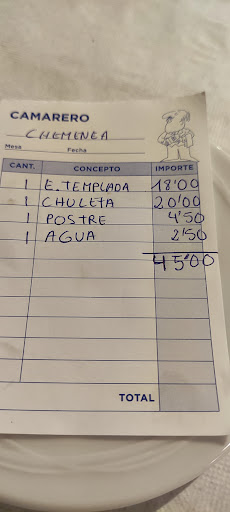 CAMARERO
CHEMENEA
Mesa Fecha
CANT. CONCEPTO IMPORTE
1 E. TEMPLADA 18'00
1 CHULETA 20'00
1 POSTRE 4'50
1 AGUA 2'50
45'00
TOTAL